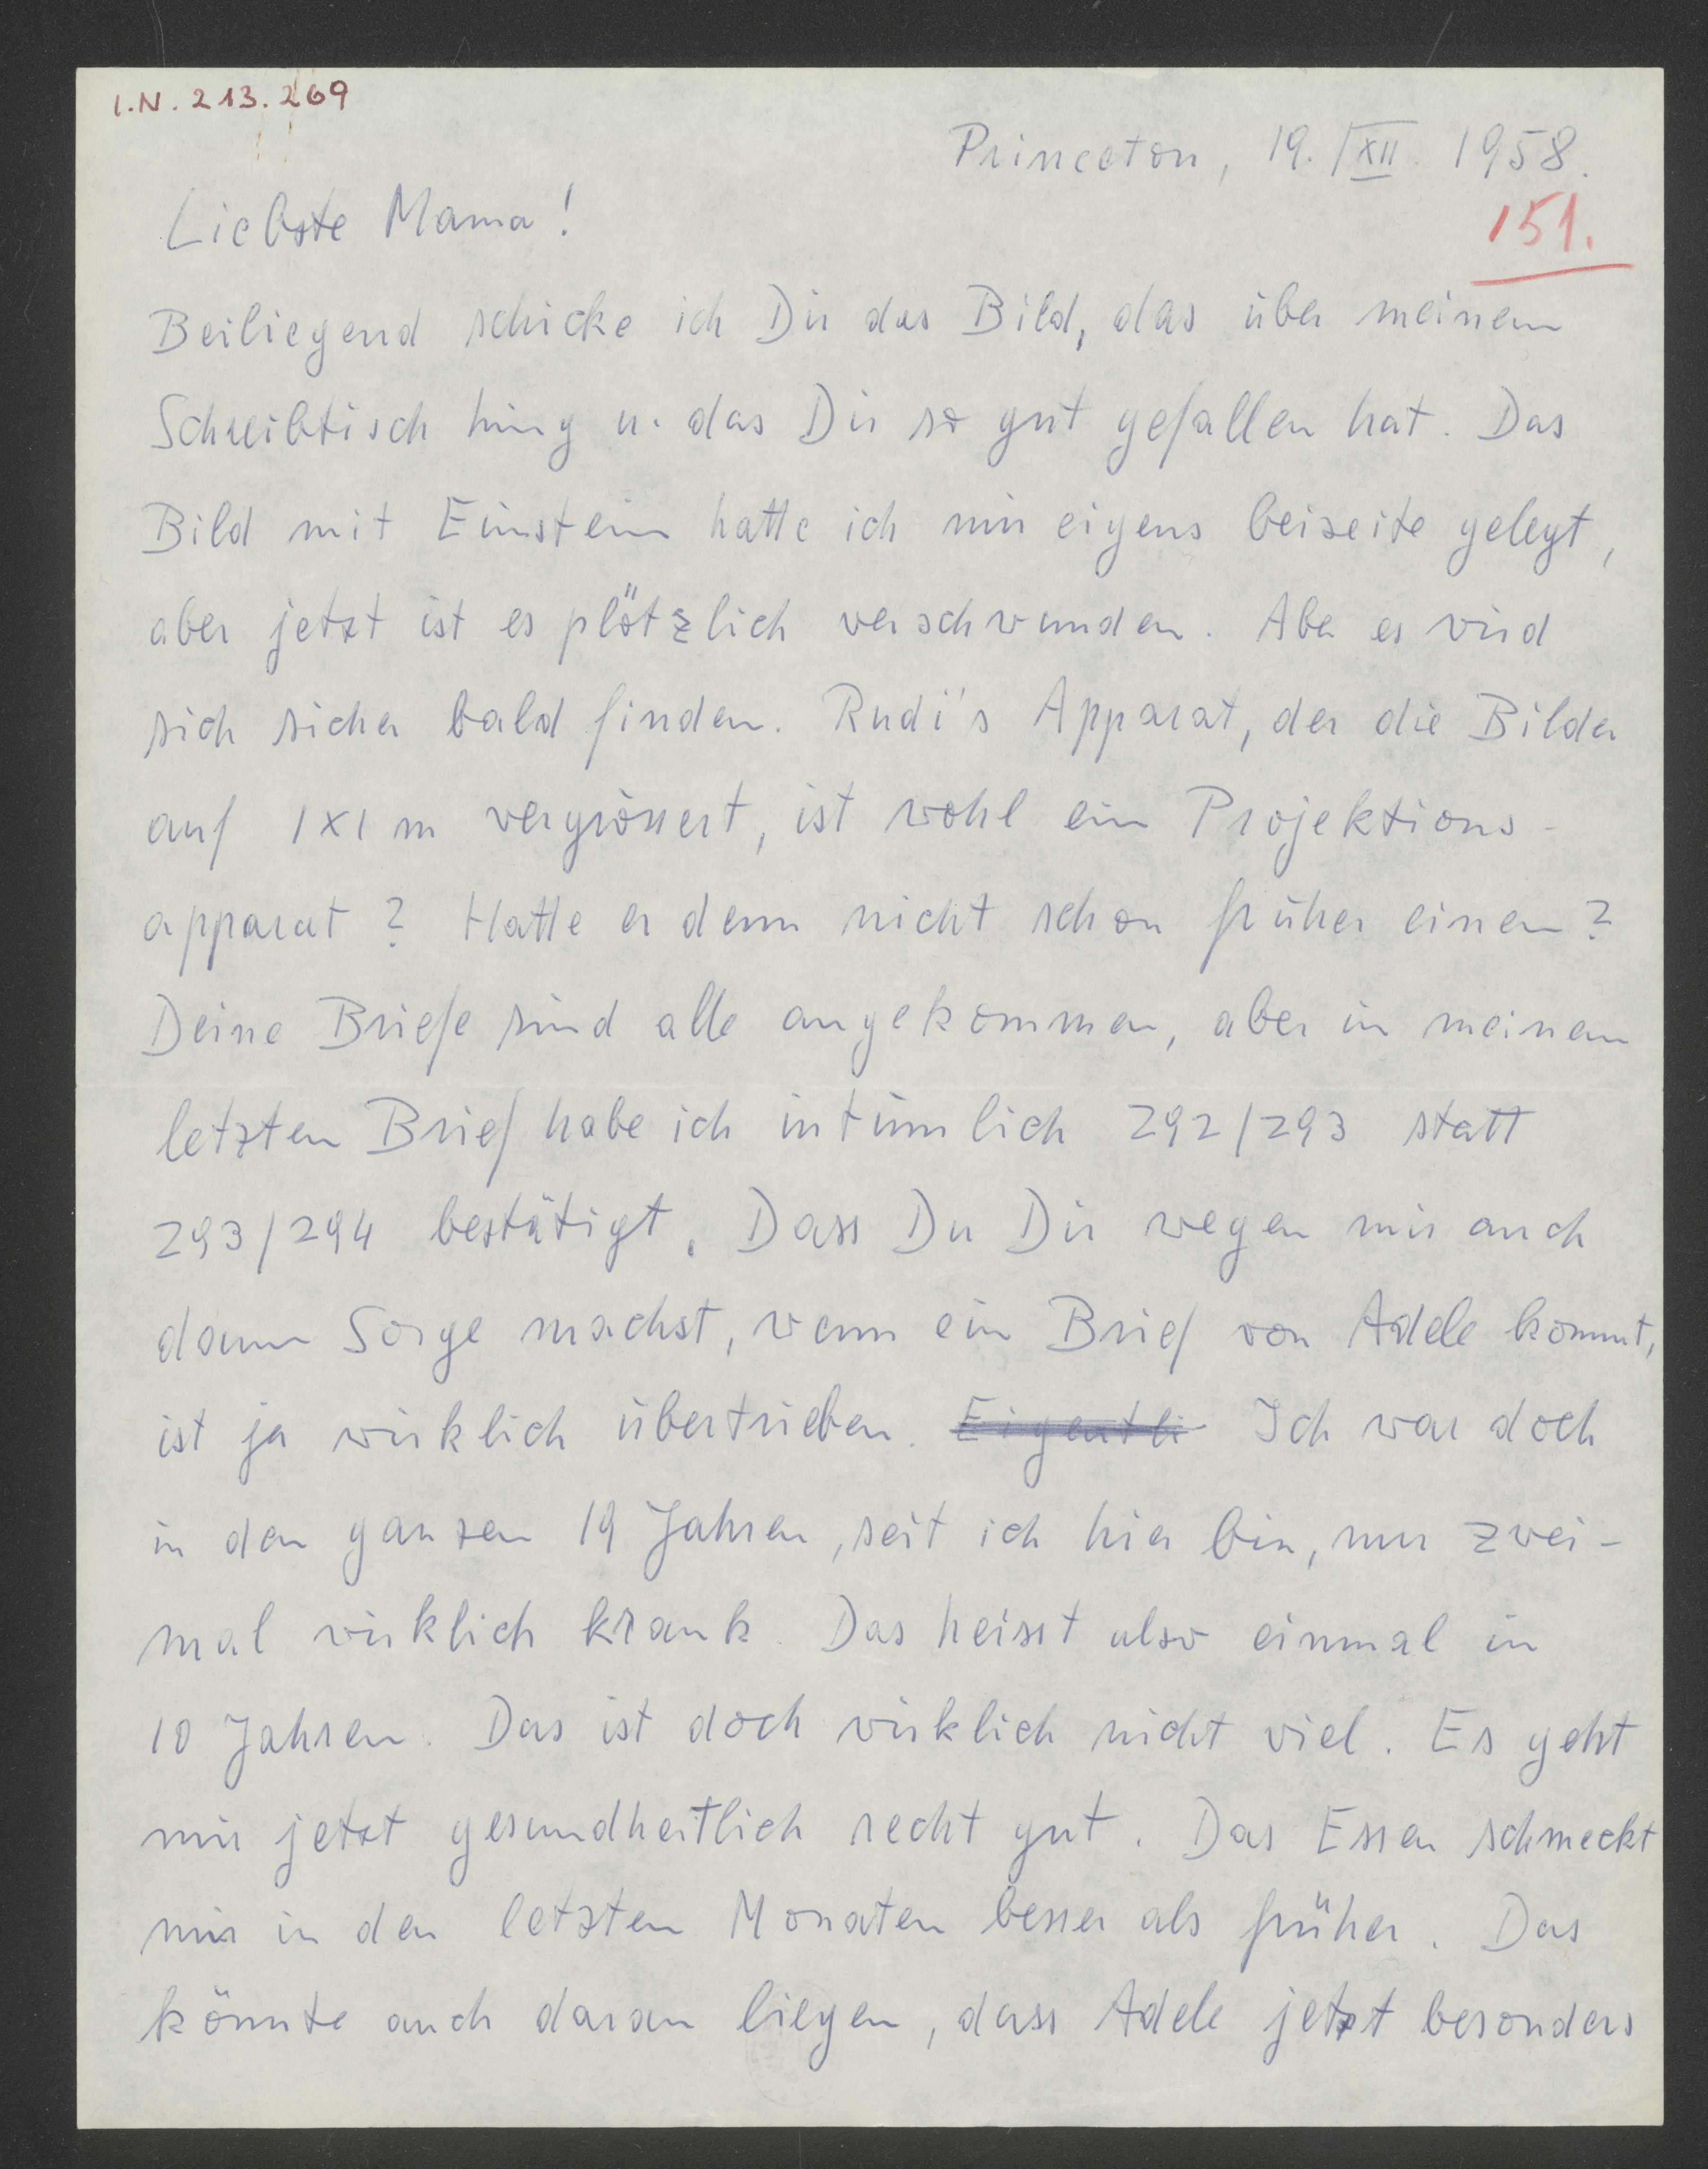 I.N. 213.269
Princeton, 19./XII. 1958.
151.
Liebste Mama!
Beiliegend schicke ich Dir das Bild, das über meinem
Schreibtisch hing u. das Dir so gut gefallen hat. Das
Bild mit Einstein hatte ich mir eigens beiseite gelegt,
aber jetzt ist es plötzlich verschwunden. Aber es wird
sich sicher bald finden. Rudi's Apparat, der die Bilder
auf 1×1 m vergrössert, ist wohl ein Projektions-
apparat? Hatte er denn nicht schon früher einen?
Deine Briefe sind alle angekommen, aber in meinem
letzten Brief habe ich irrtümlich 292/293 statt
293/294 bestätigt. Dass Du Dir wegen mir auch
dann Sorge machst, wenn ein Brief von Adele kommt,
ist ja wirklich übertrieben. Eigentli Ich war doch
in den ganzen 19 Jahren, seit ich hier bin, nur zwei-
mal wirklich krank. Das heisst also einmal in
10 Jahren. Das ist doch wirklich nicht viel. Es geht
mir jetzt gesundheitlich recht gut. Das Essen schmeckt
mir in den letzten Monaten besser als früher. Das
könnte auch daran liegen, dass Adele jetzt besonders